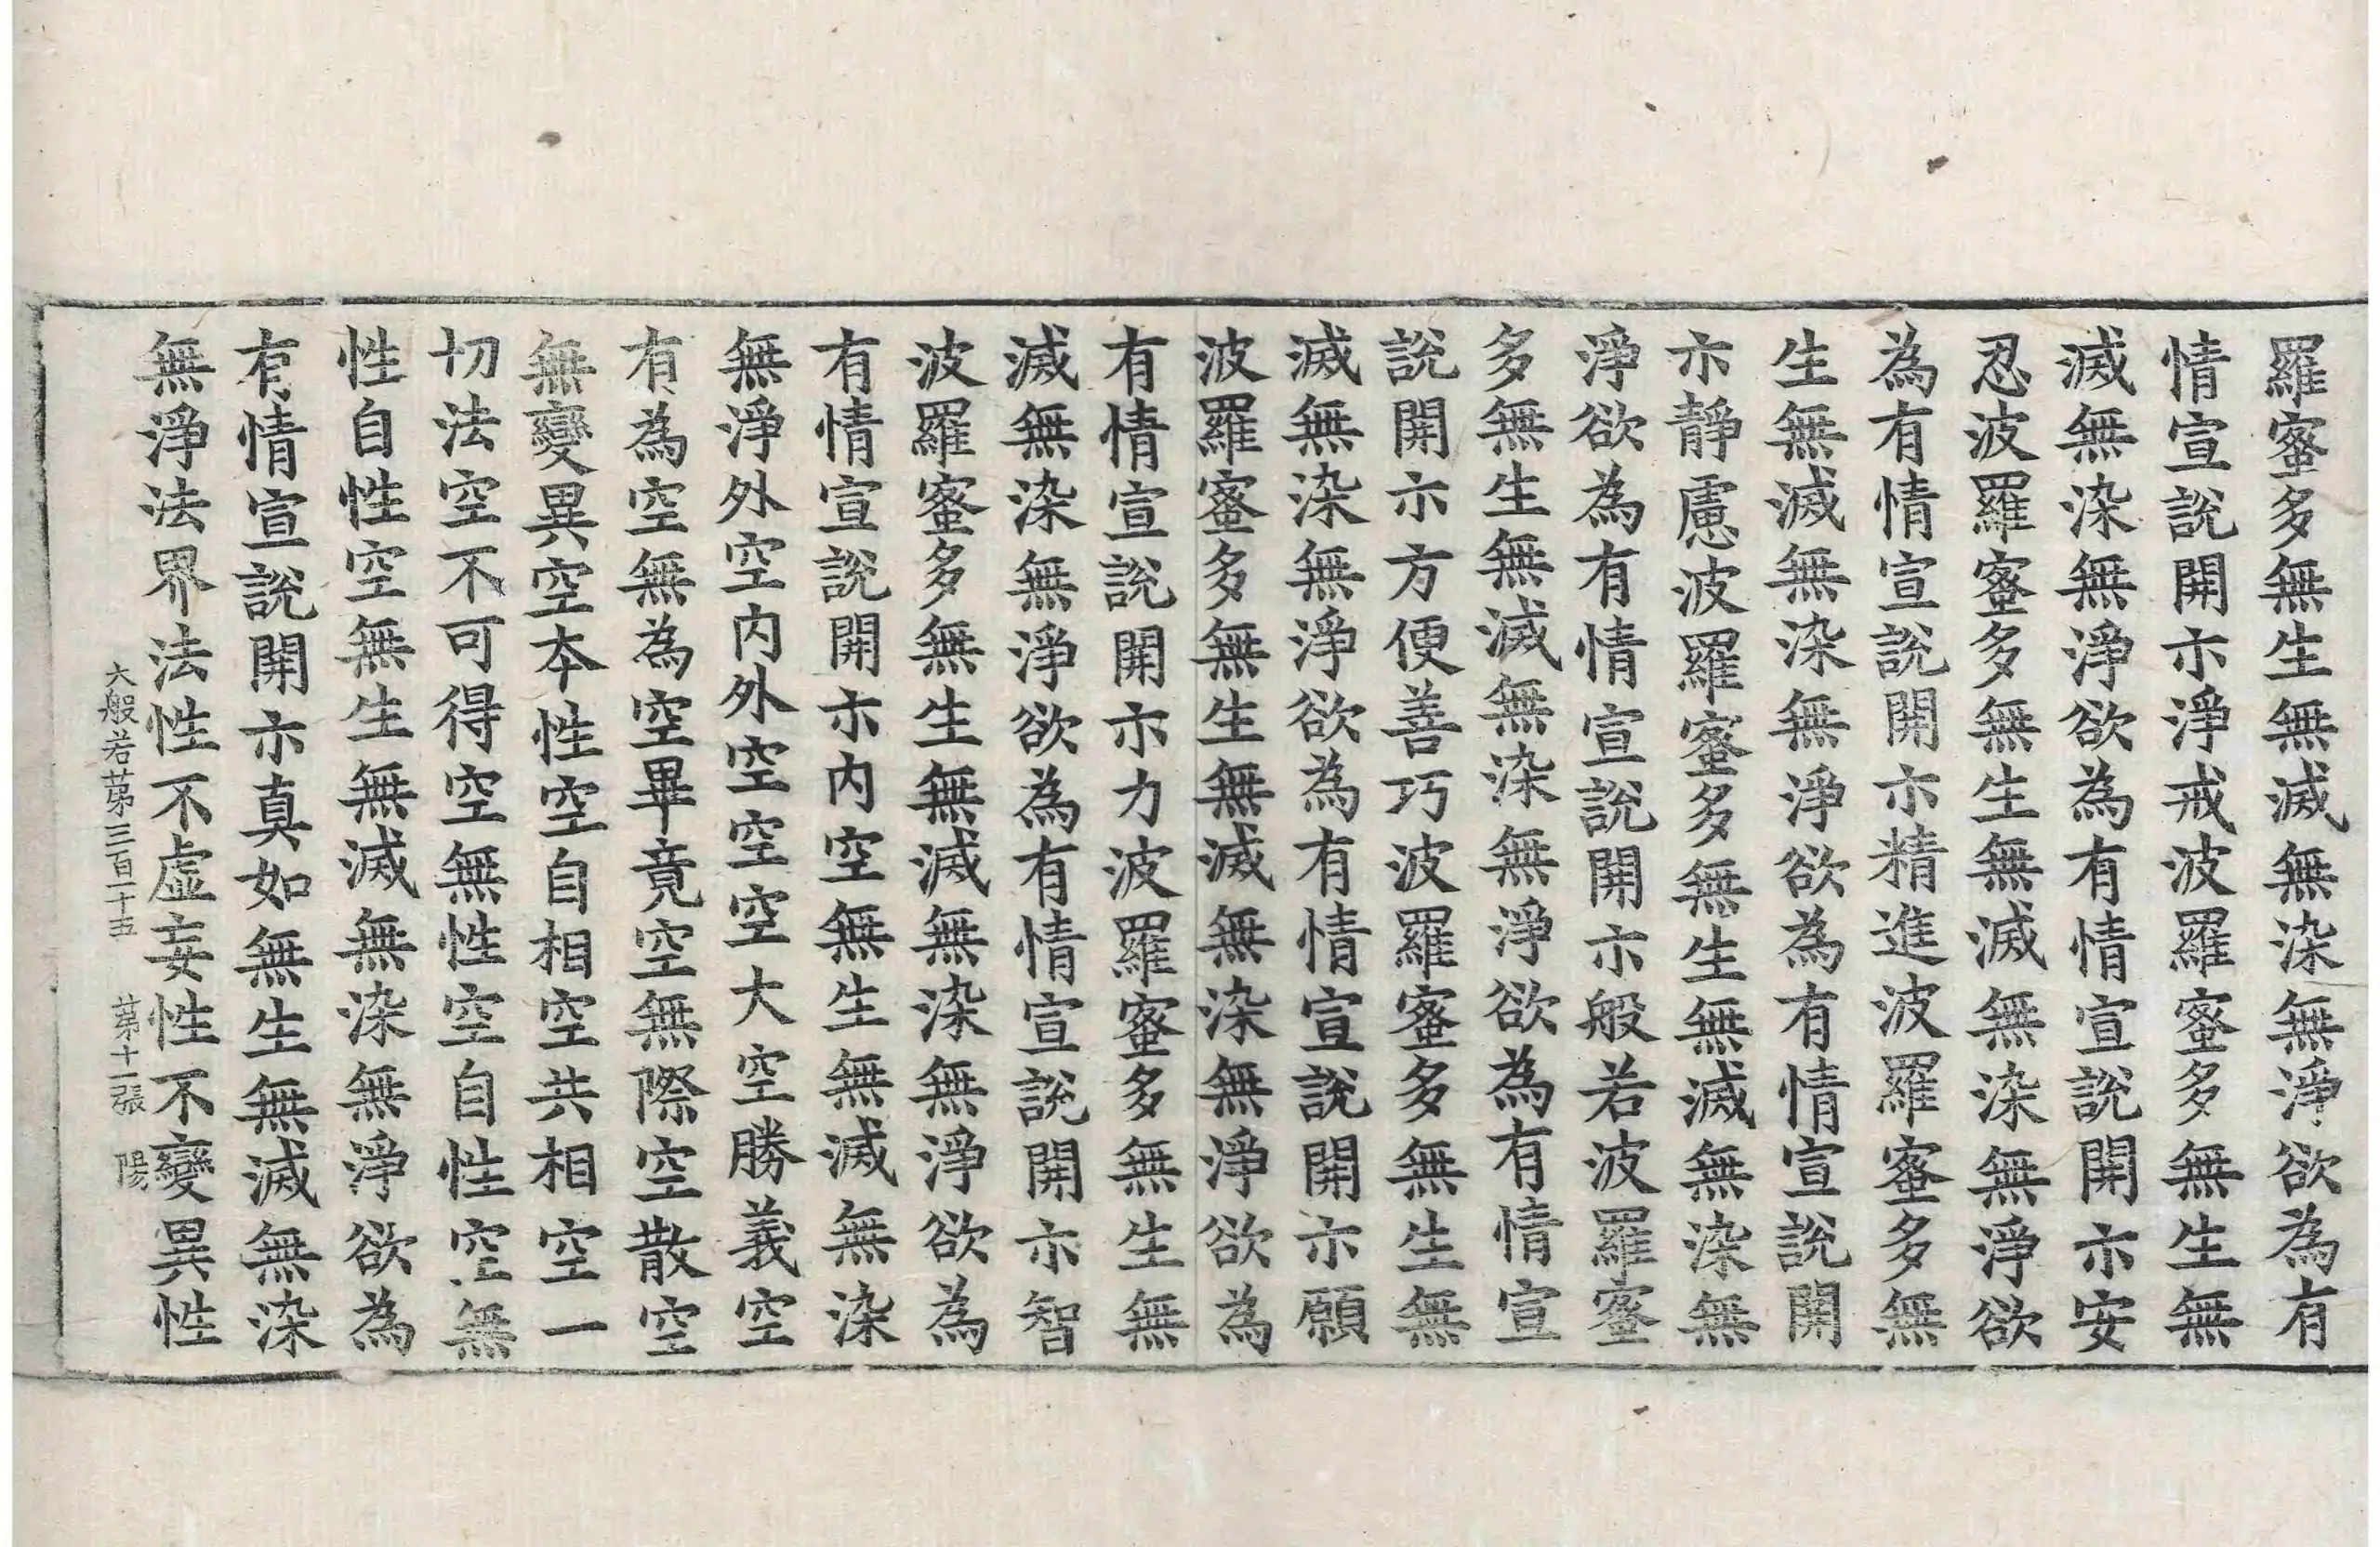 羅蜜多無生無滅無染無淨欲為有
情宣說開示淨戒波羅蜜多無生無
滅無染無淨欲為有情宣說開示安
忍波羅蜜多無生無滅無染無淨欲
為有情宣說開示精進波羅蜜多無
生無滅無染無淨欲為有情宣說開
示靜慮波羅蜜多無生無滅無染無
淨欲為有情宣說開示般若波羅蜜
多無生無滅無染無淨欲為有情宣
說開示方便善巧波羅蜜多無生無
滅無染無淨欲為有情宣說開示願
波羅蜜多無生無滅無染無淨欲為
有情宣說開示力波羅蜜多無生無
滅無染無淨欲為有情宣說開示智
波羅蜜多無生無滅無染無淨欲為
有情宣說開示內空無生無滅無染
無淨外空內外空空空大空勝義空
有為空無為空畢竟空無際空散空
無變異空本性空自相空共相空一
切法空不可得空無性空自性空無
性自性空無生無滅無染無淨欲為
有情宣說開示真如無生無滅無染
無淨法界法性不虛妄性不變異性
大般若苐三百二十五 苐十二張 陽